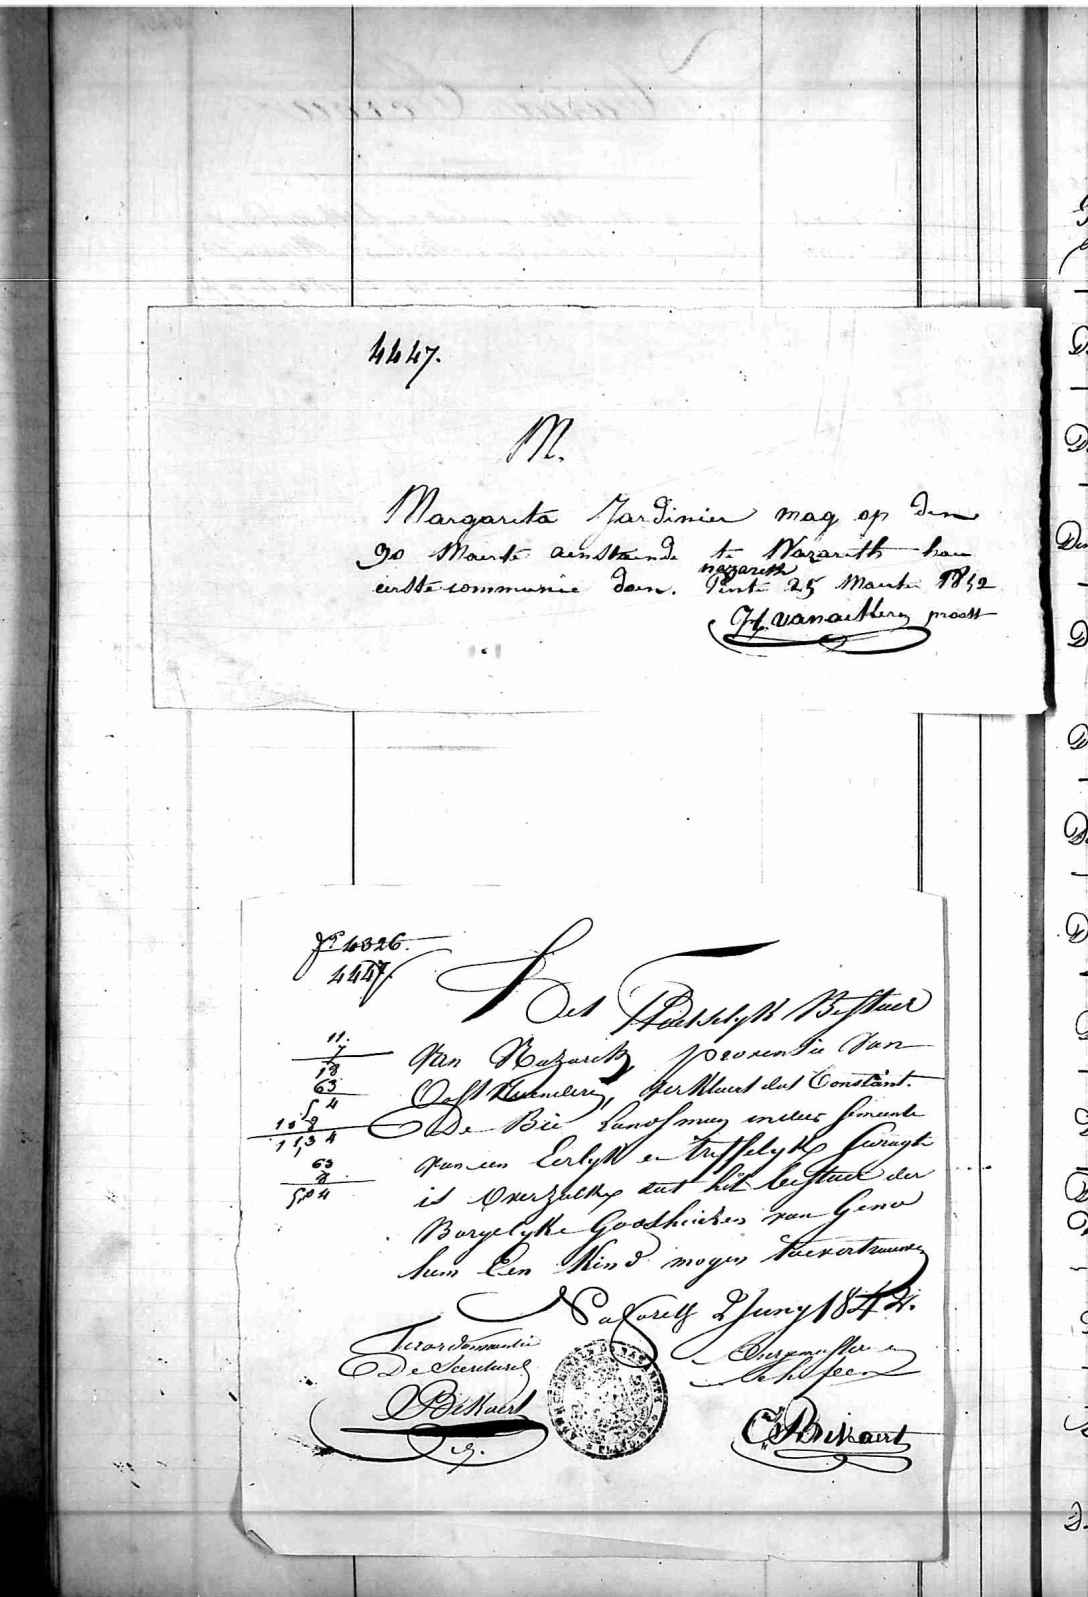 4447.
M.
Margarita Jardinier mag op den
30 Maerte aenstaende te Nazareth haer
nazareth
eerste communie doen. Pinte 25 Maerte 1852
vanaelbery proost
N° 4326.
4447.
Het Plaetselyk Bestuer
Van Nazareth, provensie van
Oost Vlaendere, verklaert dat Constant.
De Bie Landsman in deese gemeente
van een Eerlyk en treffelyk gedragt
is Overzulks dat het bestuer der
Borgelyke Godshuizen van Gend
hem Een Kind mogen toevertrouwen
Nazareth 2 Juny 1842.
11.
7
18
63
5 4
10 8
113 4
63
8
504
Ter ordonnantie
De Secretaris
Burgemeester en
Schepen
Bekaert